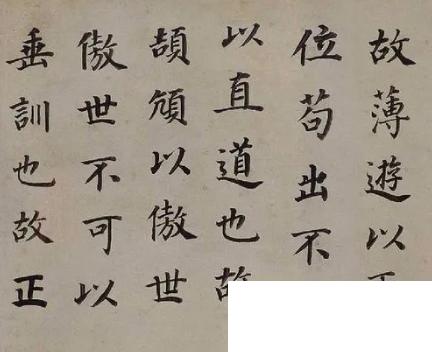 故薄遊以
位苟出不
以直道也故
頡頏以傲世
傲世不可以
垂訓也故正